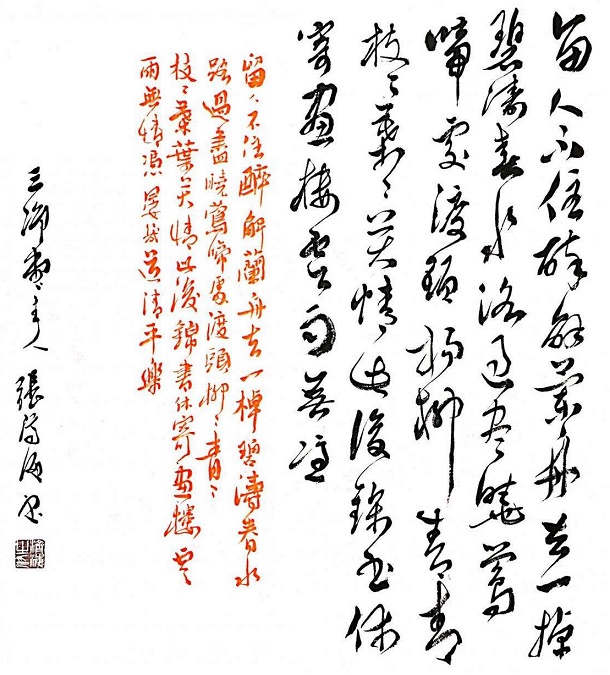 留人不住醉解蘭舟去一棹
碧濤春水路過盡曉鶯
啼處渡頭楊柳青青
枝〻葉〻离情此後錦書休
寄畫樓雲雨無憑
留〻不住醉解蘭舟去一棹碧濤春水
路過盡曉鶯啼處渡頭柳〻青〻
枝〻葉葉离情此後錦書休寄畫樓雲
雨無情憑晏幾道清平樂
三齋主人 張海書